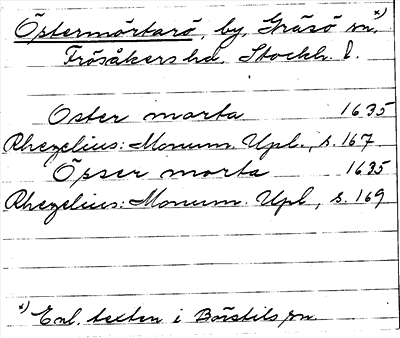 Östermörtarö, by, Gräsö sn, x)
Frösåkers hd, Stockh. l.
Oster morta 1635
Rhezelius: Monum. Upl., s. 167
Öpser morta 1635
Rhezelius: Monum. Upl., s. 169
x) Enl. texten i Börstils sn